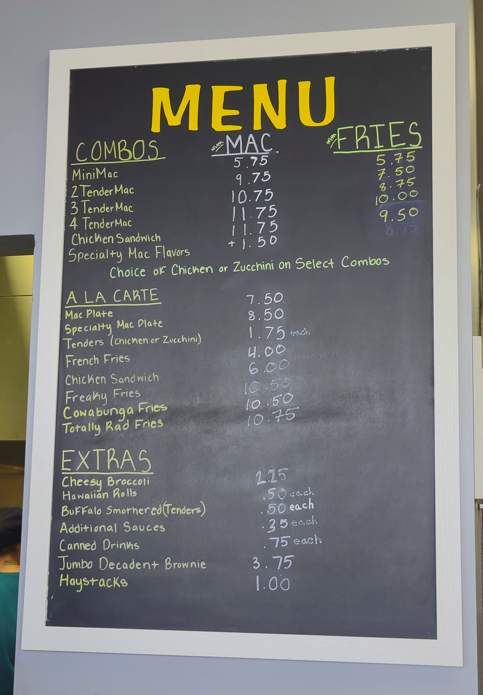 MENU
COMBOS MAC FRIES
MiniMac 5.75 5.75
2 TenderMac 9.75 7.50
3 TenderMac 10.75 8.75
4 TenderMac 11.75 10.00
Chicken Sandwich 11.75 9.50
Specialty Mac Flavors +1.50
Choice of Chicken or Zucchini on Select Combos
A LA CARTE
Mac Plate 7.50
Specialty Mac Plate 8.50
Tenders (Chicken or Zucchini) 1.75 each
French Fries 4.00
Chicken Sandwich 6.00
Freaky Fries 10.50
Cowabunga Fries 10.50
Totally Rad Fries 10.75
EXTRAS
Cheesy Broccoli
Hawaiian Rolls .50 each
Buffalo Smothered (Tenders) .50 each
Additional Sauces .35 each
Canned Drinks .75 each
Jumbo Decadent Brownie 3.75
Haystacks 1.00